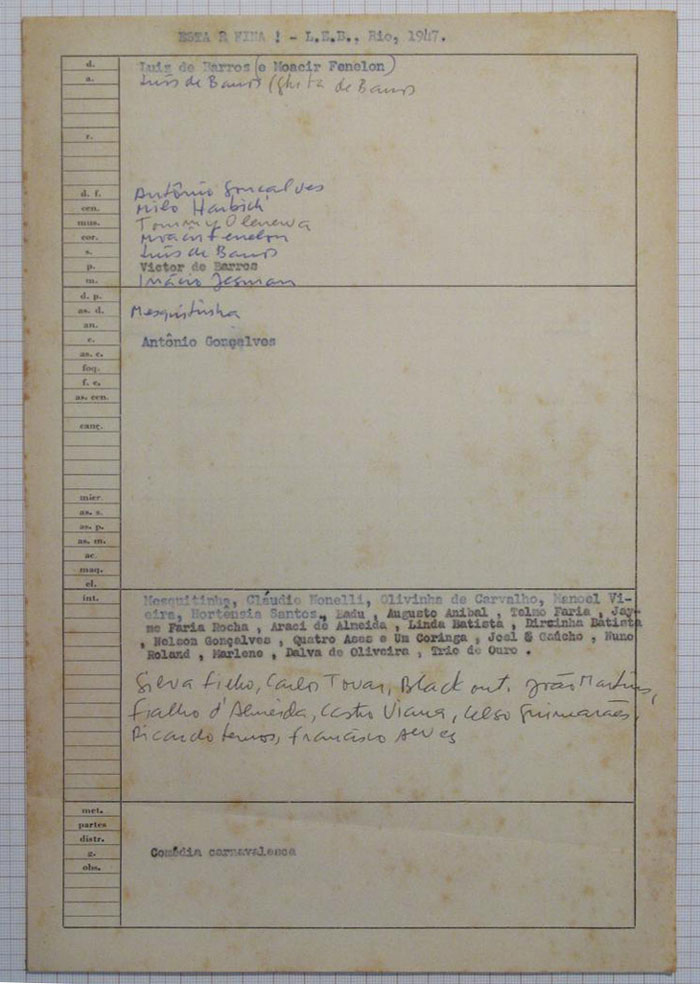 ESTA É FINA ! - L.E.B., Rio, 1947.
d. Luis de Barros (e Moacir Fenelon)
a. Luís de Barros (Ghita de Barros
r.
d. f. Antônio Gonçalves
cen. Milo Harbich
mus. Tommy Olenewa
cor. Moacir Fenelon
s. Luís de Barros
p. Victor de Barros
m. Inácio
d. p.
as. d. Mesquitinha
an.
c. Antônio Gonçalves
as. c.
foq.
f. c.
as. cen.
canç.
micr.
as. s.
as. p.
as. m.
ac.
maq.
el.
int. Mesquitinha, Cláudio Nonelli, Olivinha de Carvalho, Manoel Vi-
eira, Hortênsia Santos, Badu , Augusto Anibal , Telmo Faria , Jay-
me Faria Rocha , Araci de Almeida , Linda Batista , Dircinha Batista
, Nelson Gonçalves , Quatro Ases e Um Coringa , Joel & Gaúcho , Nuno
Roland , Marlene , Dalva de Oliveira , Trio de Ouro .
Silva Filho, Carlos Tovar, Black out, João Martins,
Fialho d'Almeida, Castro Viana, Celso Guimarães,
Ricardo Lemos, Francisco Alves
met.
partes
distr.
g. Comédia carnavalesca
obs.